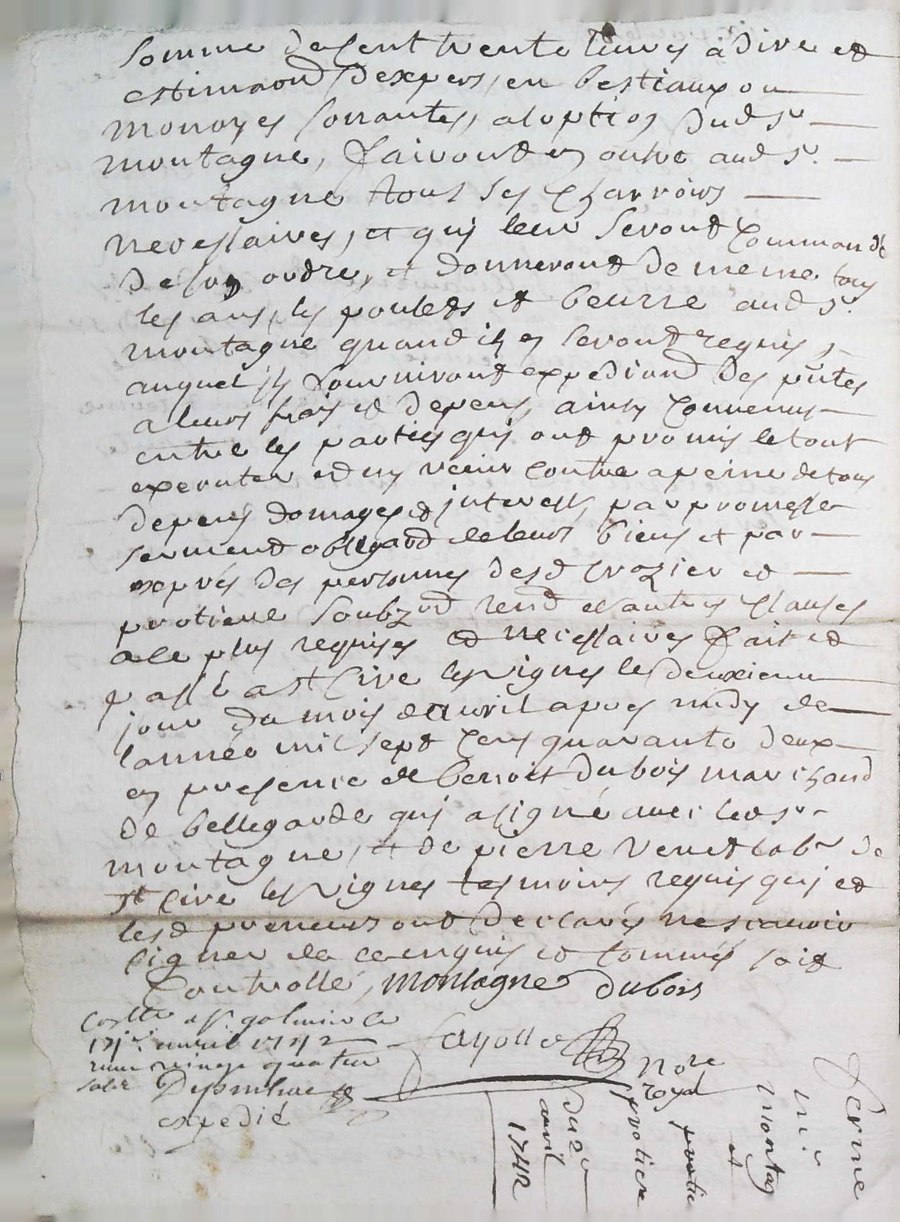 somme de cent trente livres a dire et
estimaon d'expers, en bestiaux ou
monoyes sonantes, a loption dud sr
montagne, fairont en outre aud sr.
montagne tous ses charrois
necessaires, et qui leur seront commandé
de son ordre, et donneront de meme tous
les ans, les poulets et beurre aud sr.
montagne quand ils en seront requis,
auquel ils fourniront expediond des pntes
a leurs frais et depens, ainsy convenus
entre les parties qui ont promis le tout
executer et ny venir contre a peine de tous
depens domages et interests, par promesse
serment obligaond de leurs biens et par
exprés des personnes desd crozier et
protiere soubz ond rend et autres clauses
a ce plus requises et necessaires fait et
passé a st Cire les vignes le deuxieme
jour du mois d'avril apres midy de
lannée mil sept cens quarante deux
en presence de benoit dubois marchand
de bellegarde qui a signé avec led sr
montagne, et de pierre venet labr de
st cire les vignes tesmoins requis qui et
lesd preneurs ont declarés ne scavoir
signer de ce enquis et sommés soit
Controllé, montagne dubois
Coллé a st. galmier le
avril 1742
vingt quatre
expedié
Nore
royal
protiere
du 2e
avril
1742
ferme
mr
montag
et
protie